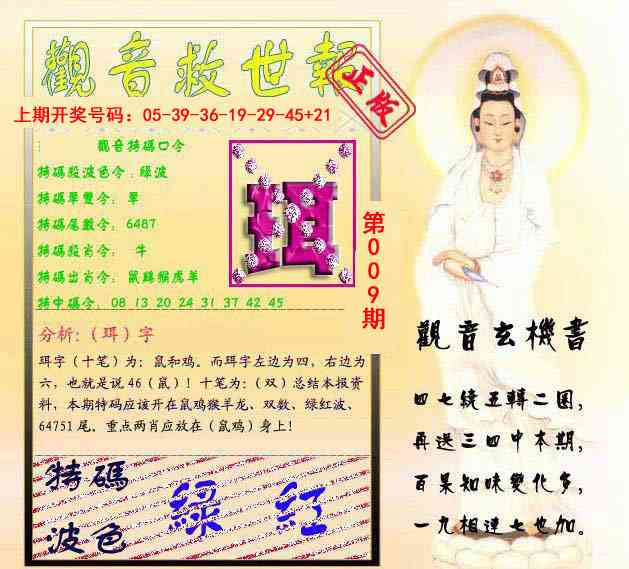 觀音救世報
正版
上期开奖号码：05-39-36-19-29-45+21
觀音特碼口令
特碼殺波色令：綠波
特碼單雙令： 單
特碼尾數令： 6487
特碼殺肖令： 牛
特碼出肖令： 鼠鷄猴虎羊
特中碼令： 08 13 20 24 31 37 42 45
珥
第009期
分析:（珥）字
珥字（十笔）为：鼠和鸡。而珥字左边为四，右边为
六，也就是说46（鼠）！十笔为：（双）总结本报资
料，本期特码应该开在鼠鸡猴羊龙、双数、绿红波、
64751尾。重点两肖应放在（鼠鸡）身上！
特碼
波色
綠 紅
觀音玄機書
四七繞五轉二圈，
再送三四中本期，
百果知味變化多，
一九相連七也加。